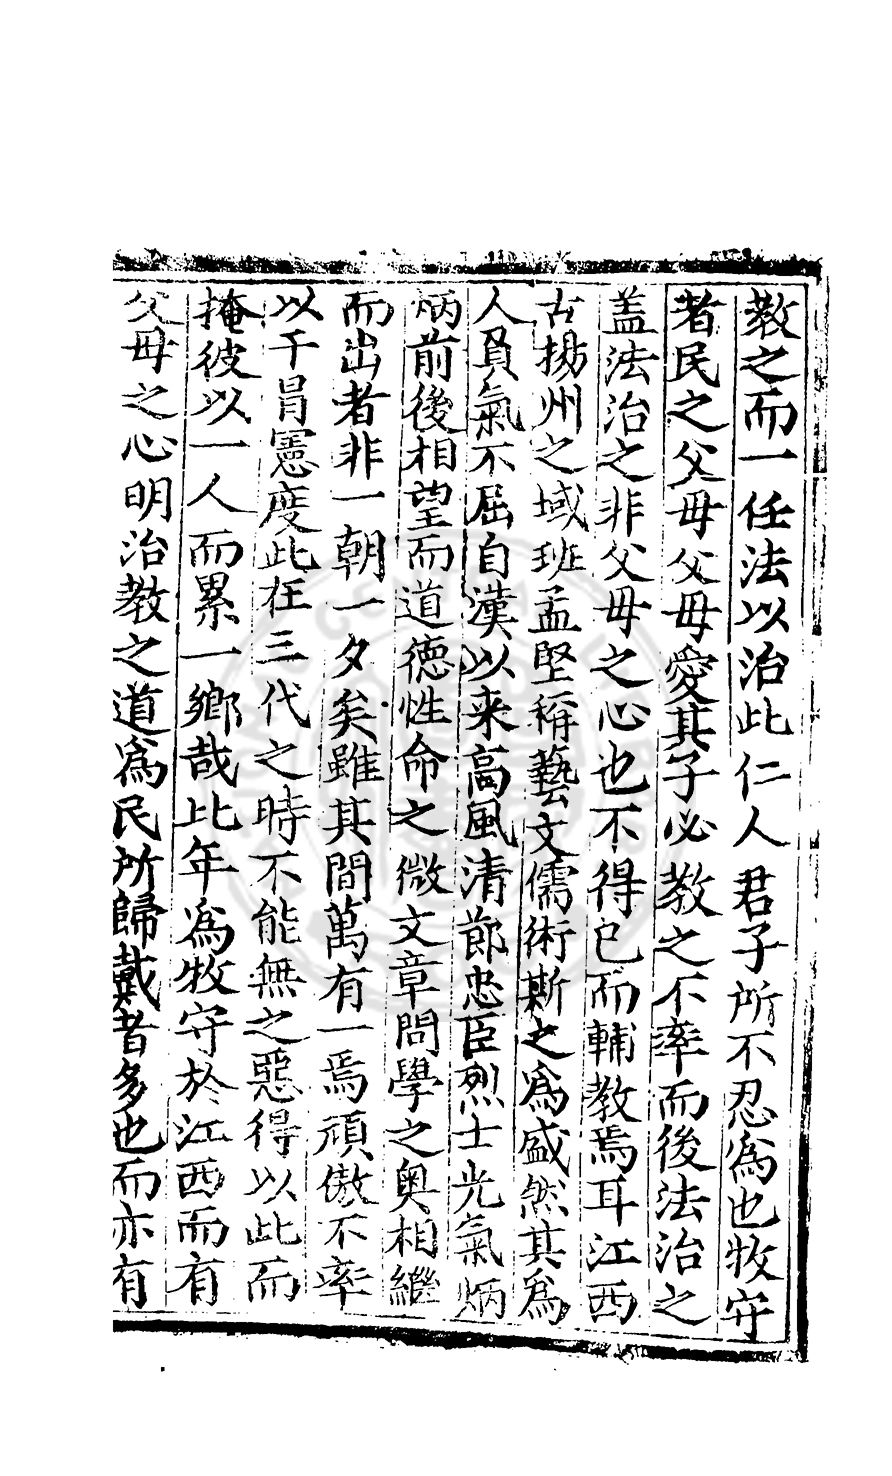 教之而一任法以治此仁人君子所不忍為也牧守
者民之父母父母愛其子必教之不率而後法治之
盖法治之非父母之心也不得已而輔教焉耳江西
古揚州之域班孟堅稱藝文儒術斯之為盛然其為
人負氣不屈自漢以来高風清節忠臣烈士光氣炳
炳前後相望而道德性命之微文章問學之奧相繼
而出者非一朝一夕矣雖其間萬有一焉頑傲不率
以干冐憲度此在三代之時不能無之惡得以此而
掩彼以一人而累一鄉哉比年為牧守於江西而有
父母之心明治教之道為民所歸戴者多也而亦有